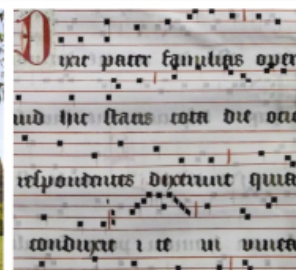 Dixit pater familias oper
uid hic statis tota die ocio
respondentes dixerunt quia
conduxit i te in vinea